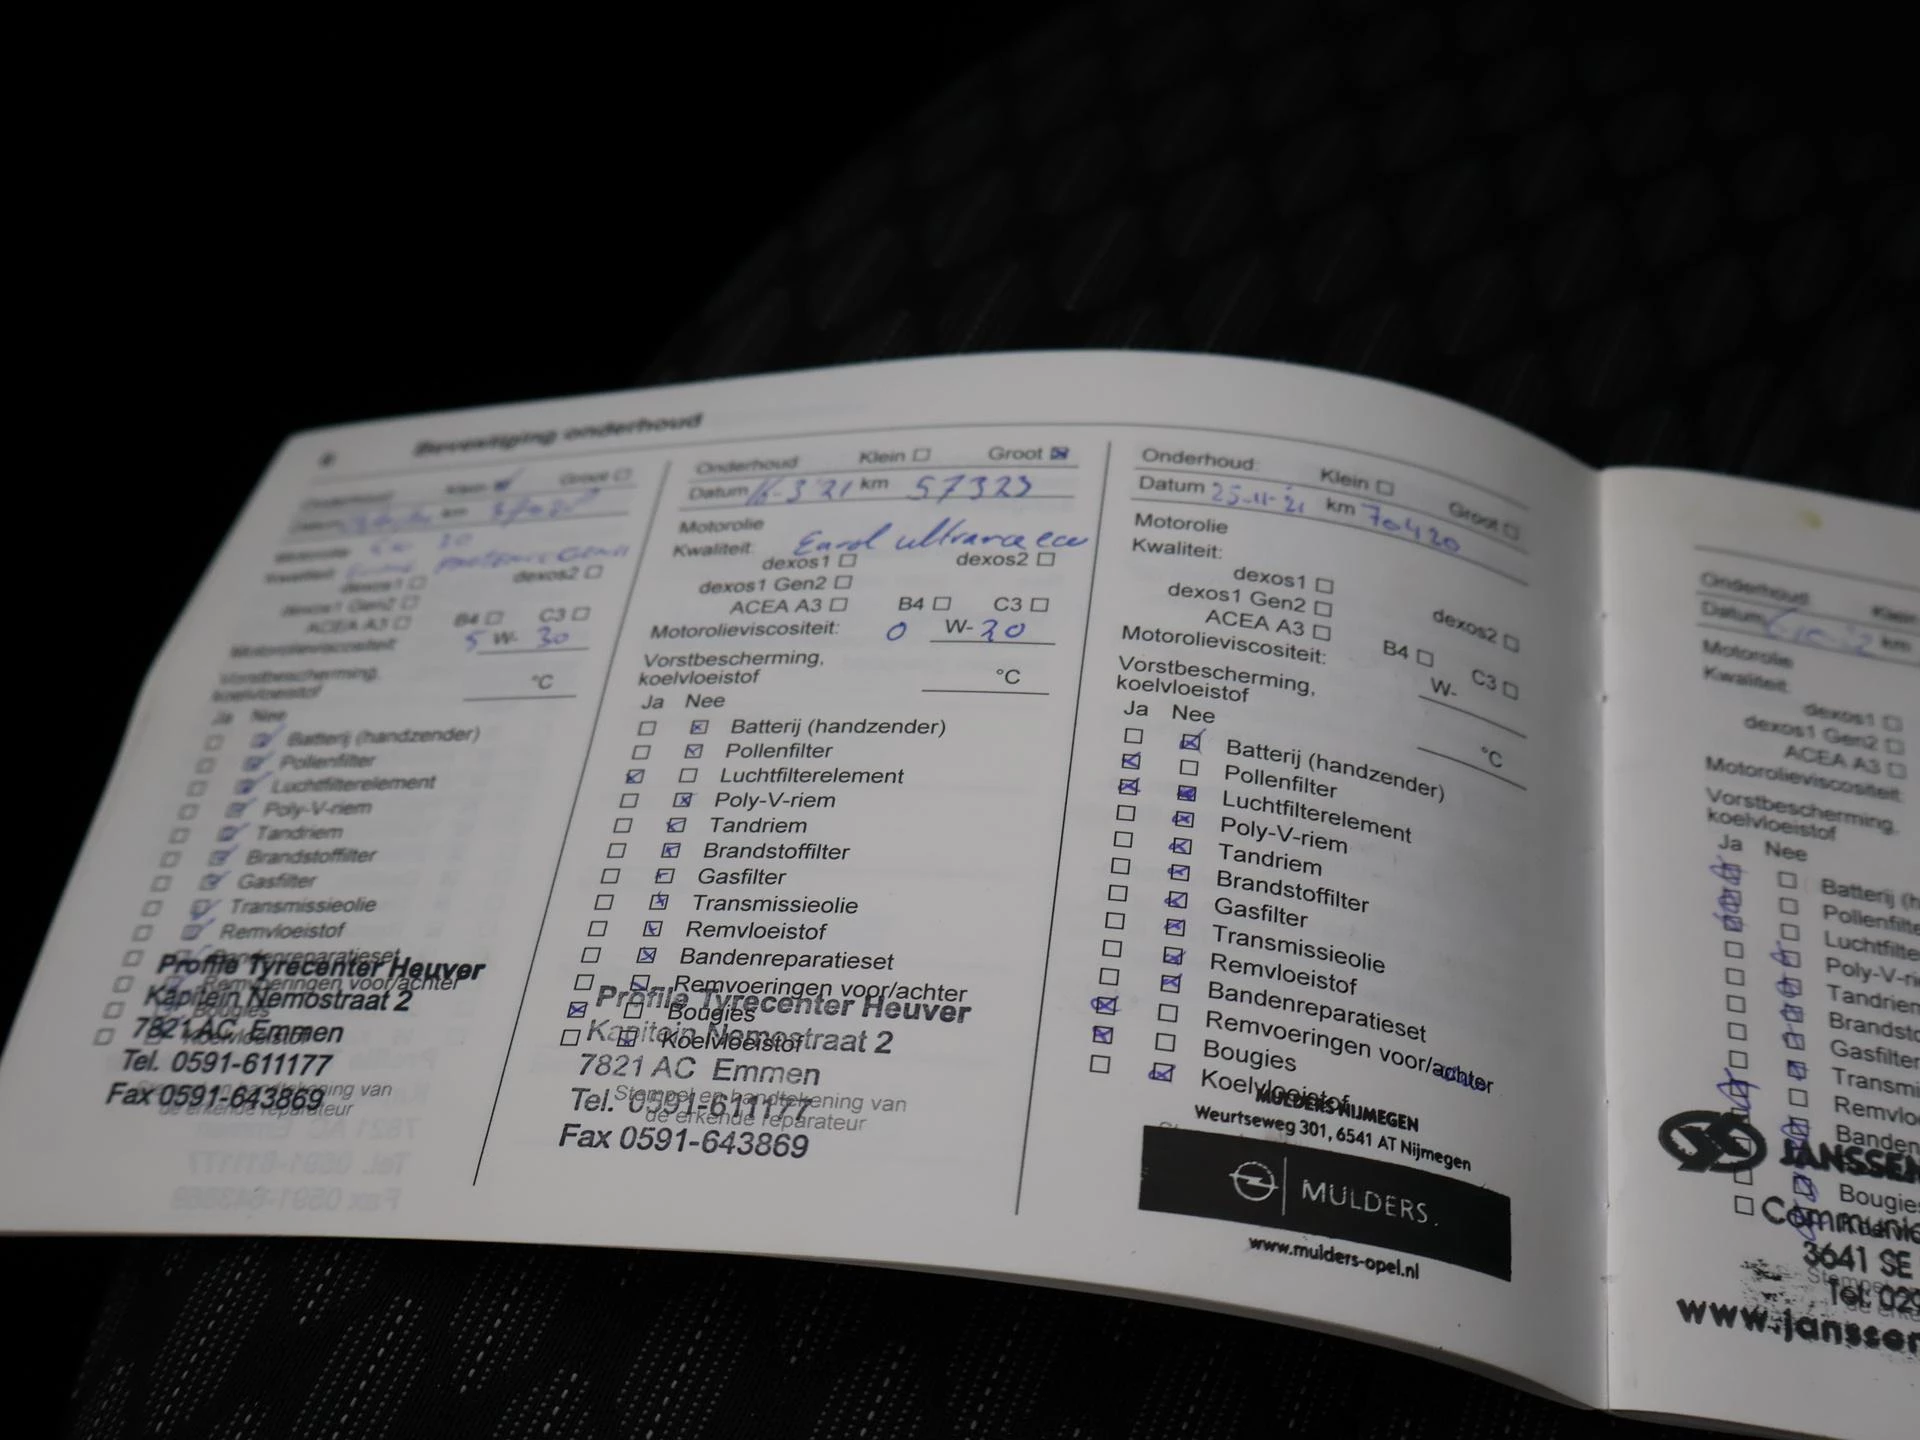 Bevestiging onderhoud
Onderhoud: Klein Groot
Datum km
Motorolie 5w 30
Kwaliteit:
dexos1 dexos2
dexos1 Gen2
ACEA A3 B4 C3
Motorolieviscositeit: 5 W- 30
Vorstbescherming,
koelvloeistof °C
Ja Nee
Batterij (handzender)
Pollenfilter
Luchtfilterelement
Poly-V-riem
Tandriem
Brandstoffilter
Gasfilter
Transmissieolie
Remvloeistof
Bandenreparatieset
Remvoeringen voor/achter
Bougies
Koelvloeistof
Profile Tyrecenter Heuver
Kapitein Nemostraat 2
7821 AC Emmen
Tel. 0591-611177
Fax 0591-643869
Stempel en handtekening van
de erkende reparateur
Onderhoud: Klein Groot
Datum 16-3'21 km 57323
Motorolie
Kwaliteit: Eurol ultrance ecw
dexos1 dexos2
dexos1 Gen2
ACEA A3 B4 C3
Motorolieviscositeit: 0 W- 20
Vorstbescherming,
koelvloeistof °C
Ja Nee
Batterij (handzender)
Pollenfilter
Luchtfilterelement
Poly-V-riem
Tandriem
Brandstoffilter
Gasfilter
Transmissieolie
Remvloeistof
Bandenreparatieset
Remvoeringen voor/achter
Bougies
Koelvloeistof
Profile Tyrecenter Heuver
Kapitein Nemostraat 2
7821 AC Emmen
Tel. 0591-611177
Fax 0591-643869
Stempel en handtekening van
de erkende reparateur
Onderhoud: Klein Groot
Datum 25-11-'21 km 70420
Motorolie
Kwaliteit:
dexos1 dexos2
dexos1 Gen2
ACEA A3 B4 C3
Motorolieviscositeit: W-
Vorstbescherming,
koelvloeistof °C
Ja Nee
Batterij (handzender)
Pollenfilter
Luchtfilterelement
Poly-V-riem
Tandriem
Brandstoffilter
Gasfilter
Transmissieolie
Remvloeistof
Bandenreparatieset
Remvoeringen voor/achter
Bougies
Koelvloeistof
MULDERS NIJMEGEN
Weurtseweg 301, 6541 AT Nijmegen
MULDERS.
www.mulders-opel.nl
Onderhoud: Klein
Datum km
Motorolie
Kwaliteit:
dexos1
dexos1 Gen2
ACEA A3
Motorolieviscositeit:
Vorstbescherming,
koelvloeistof
Ja Nee
Batterij (h
Pollenfilte
Luchtfilte
Poly-V-ri
Tandriem
Brandsto
Gasfilter
Transmi
Remvlo
Banden
JANSSEN
Bougies
Communic
3641 SE
Tel: 029
www.janssen